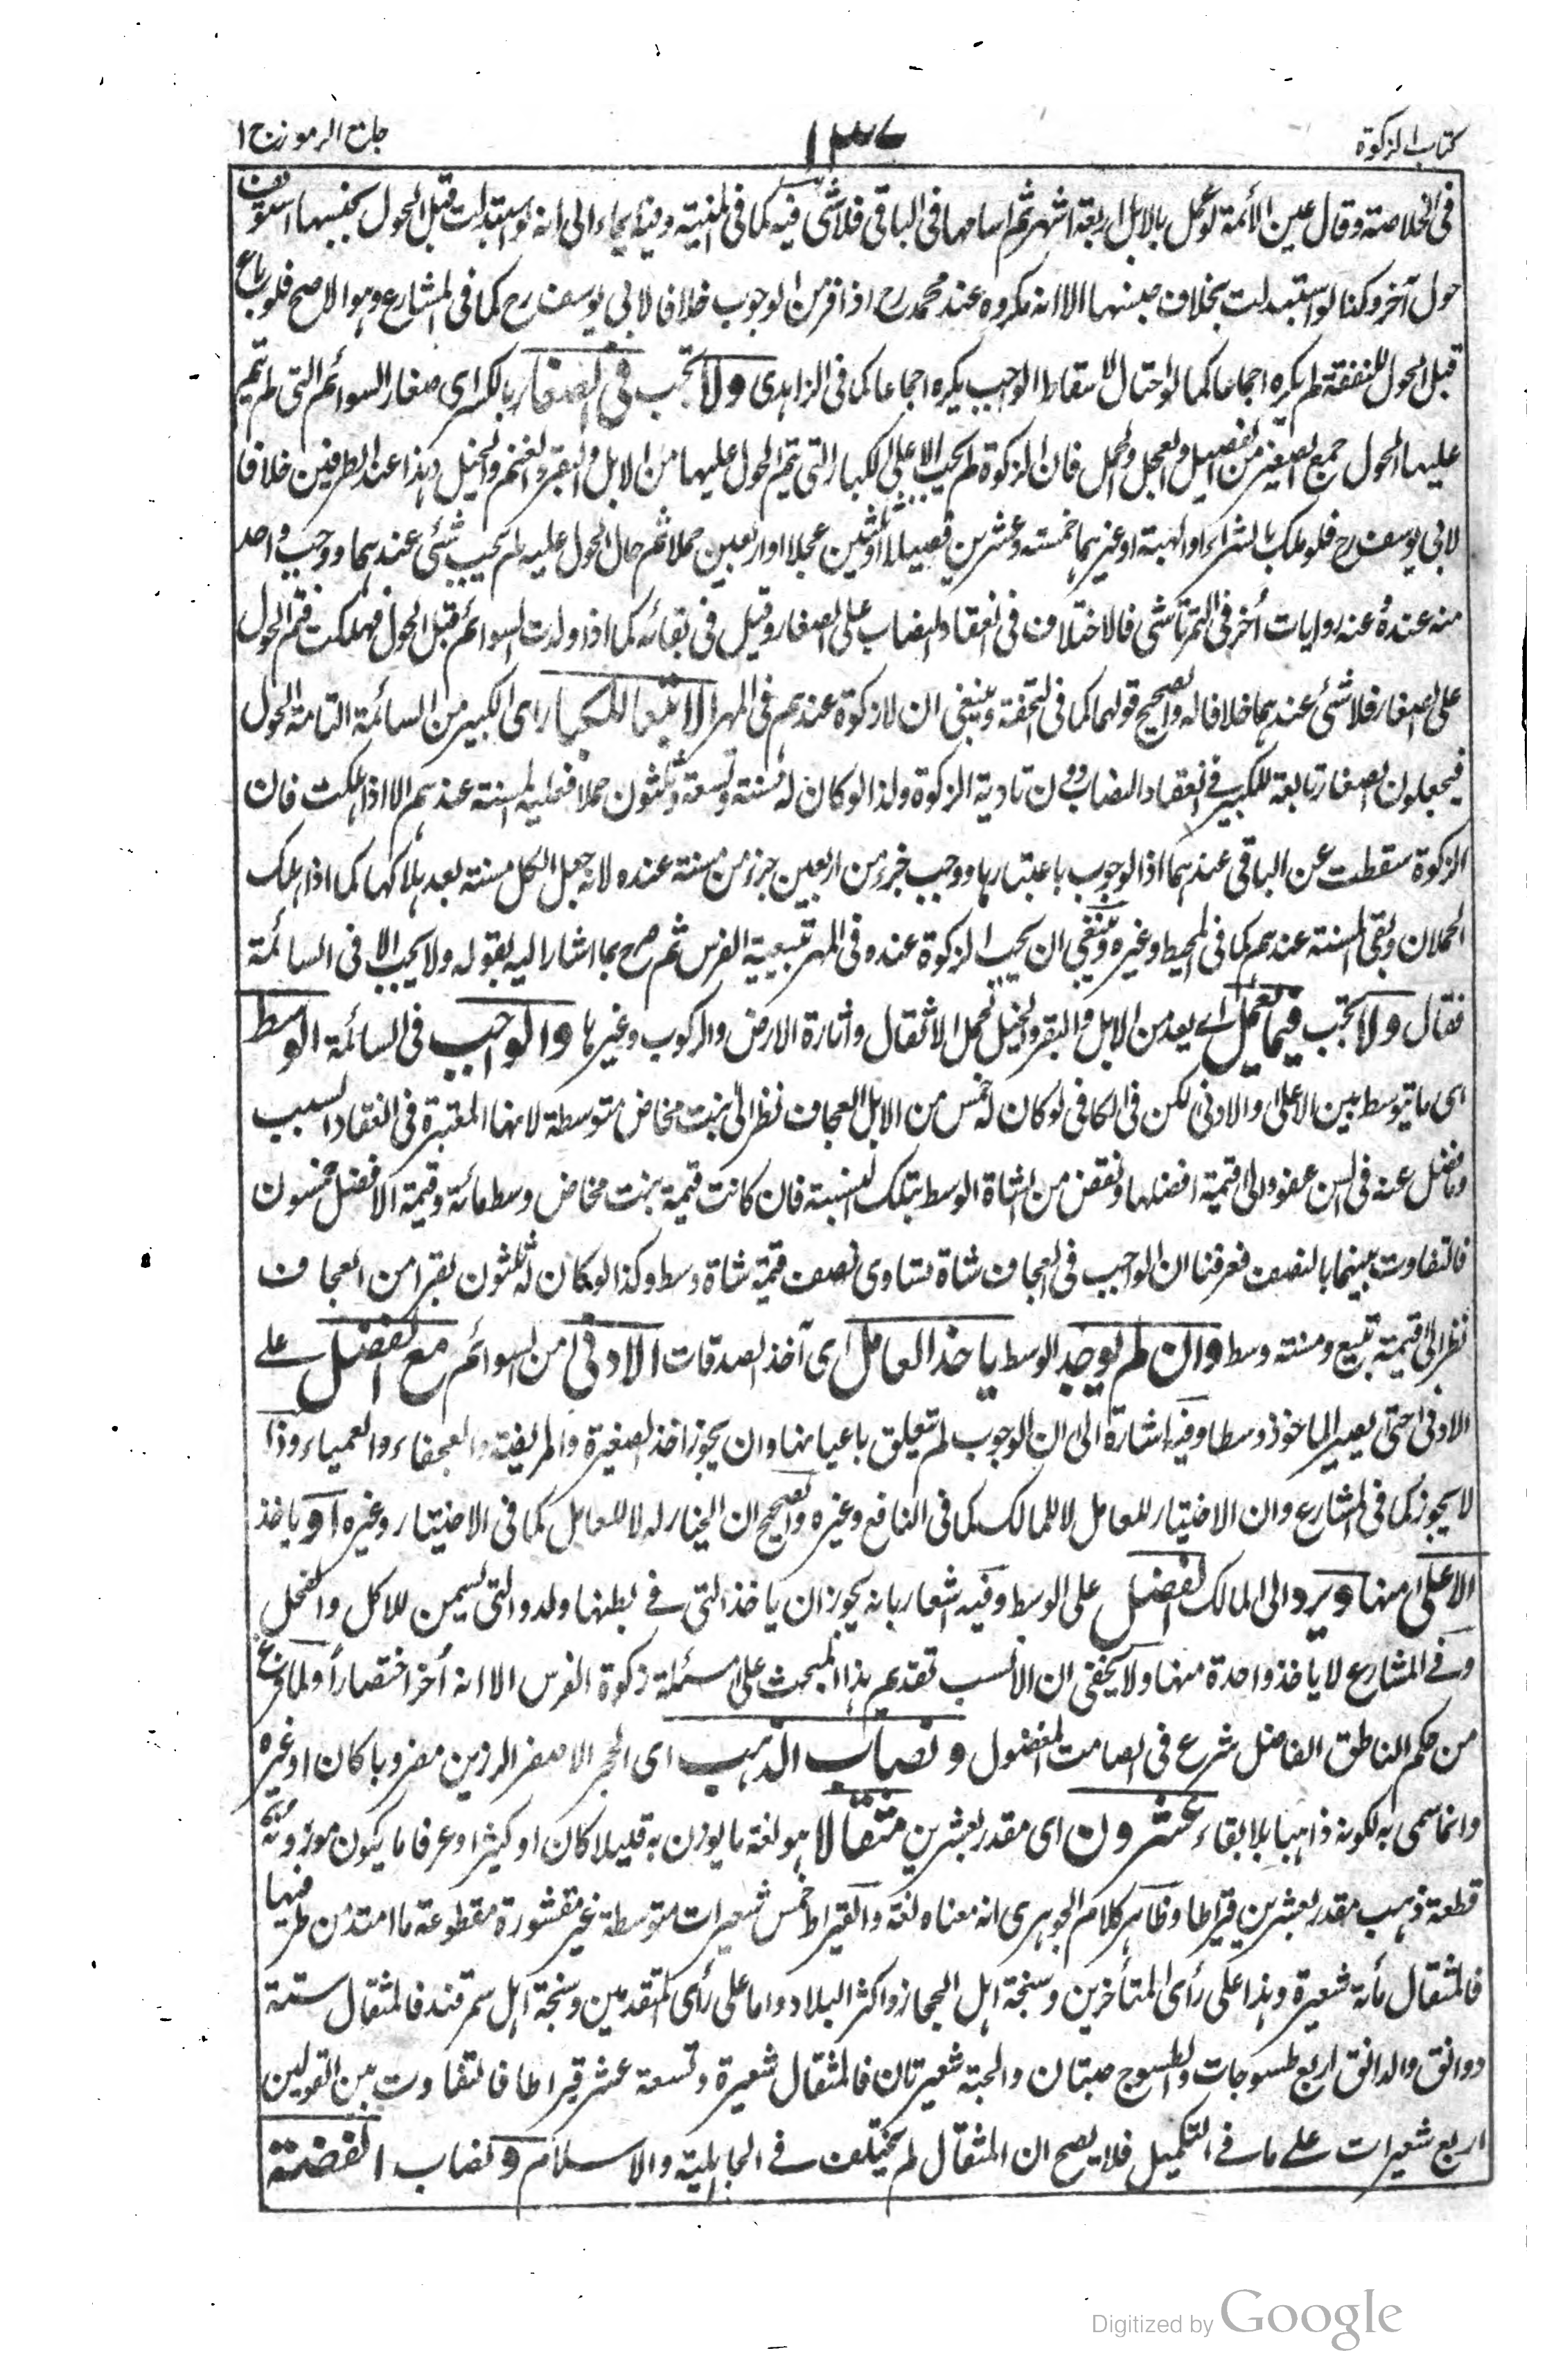 كتاب الزكوة
١٣٧
جامع الرموز ج ١
فى الخلاصة وقال عين الأئمة لو عمل بالابل اربعة اشهر ثم اسامها فى الباقى فلا شئ فيه كما فى المنية وفيه ايماء الى انه لو استبدلت قبل الحول بجنسها استونف
حول آخر وكذا لو استبدلت بخلاف جنسها الا انه مكروه عند محمد رح اذا فر من الوجوب خلافا لابى يوسف رح كما فى المشارع وهو الاصح فلو باع
قبل الحول للنفقة لم يكره اجماعا كما لو احتال لاسقاط الواجب يكره اجماعا كما فى الزاهدى ولا تجب فى الصغار بالكسر اى صغار السوائم التى لم يتم
عليها الحول جمع الصغير من الفصيل والعجل والحمل فان الزكوة لم تجب الا على الكبار التى يتم الحول عليها من الابل والبقر والغنم والخيل وهذا عند الطرفين خلافا
لابى يوسف رح فلو ملك بالشراء او الهبة او غيرهما خمسة وعشرين فصيلا او ثلثين عجلا او اربعين حملا ثم حال الحول عليه لم يجب شئ عندهما ووجب واحد
منه عنده وعنه روايات أخر فى التمرتاشى فالاختلاف فى انعقاد النصاب على الصغار وقيل فى بقائه كما اذا ولدت السوائم قبل الحول فهلكت فتم الحول
على الصغار فلا شئ عندهما خلافا له والصحيح قولهما كما فى التحفة وينبغى ان لا زكوة عندهم فى المهر الا تبعا للكبار اى الكبير من السائمة التامة الحول
فيجعلون الصغار تابعة للكبير فى انعقاد النصاب دون تادية الزكوة ولذا لو كان له مسنة وتسعة وثلثون حملا فعليه المسنة عندهم الا اذا هلكت فان
الزكوة سقطت عن الباقى عندهما اذ الوجوب باعتبارها ووجب جزء من اربعين جزء من مسنة عنده لانه جعل الكل مسنة بعد هلاكها كما اذا هلك
الحملان وبقى المسنة عندهم كما فى المحيط وغيره وينبغى ان يجب الزكوة عنده فى المهر تبعية الفرس ثم صرح بما اشار اليه بقوله ولا يجب الا فى السائمة
فقال ولا تجب فيما يعمل اى يعد من الابل والبقر والخيل لحمل الاثقال واثارة الارض والركوب وغيرها والواجب فى السائمة الوسط
اى ما يتوسط بين الاعلى والادنى لكن فى الكافى لو كان له خمس من الابل العجاف نظر الى بنت مخاض متوسطة لانها المعتبرة فى انعقاد السبب
وما فضل عنه فى السن عفو والى قيمة افضلها ونقص من الشاة الوسط بتلك النسبة فان كانت قيمة بنت مخاض وسط مائة وقيمة الافضل خمسون
فالتفاوت بينهما بالنصف فعرفنا ان الواجب فى العجاف شاة تساوى نصف قيمة شاة وسط وكذا لو كان له ثلثون بقرا من العجاف
نظر الى قيمة تبيع ومسنة وسط وان لم يوجد الوسط ياخذ العامل اى آخذ الصدقات الادنى من السوائم مع الفضل على
الادنى حتى يصير الماخوذ وسطا وفيه اشارة الى ان الوجوب لم تتعلق باعيانها وان يجوز اخذ الصغيرة والمريضة والعجفاء والعمياء وذا
لا يجوز كما فى المشارع وان الاختيار للعامل لا للمالك كما فى النافع وغيره والصحيح ان الخيار له لا للعامل كما فى الاختيار وغيره او ياخذ
الاعلى منها ويرد الى المالك الفضل على الوسط وفيه اشعار بانه يجوز ان ياخذ التى فى بطنها ولد والتى تسمن للاكل والفحل
وفى المشارع لا ياخذ واحدة منها ولا يخفى ان الانسب تقديم هذا المبحث على مسئلة زكوة الفرس الا انه أخر اختصارا ولما فرغ
من حكم الناطق الفاضل شرع فى الصامت المفضول ونصاب الذهب اى الحجر الاصفر الرزين مضروبا كان او غيره
وانما سمى به لكونه ذاهبا بلا بقاء عشرون اى مقدر بعشرين مثقالا هو لغة ما يوزن به قليلا كان او كثيرا وعرفا ما يكون موزونه
قطعة ذهب مقدر بعشرين قيراطا وظاهر كلام الجوهرى انه معناه لغة والقيراط خمس شعيرات متوسطة غير مقشورة مقطوعة ما امتد من طرفيها
فالمثقال مأة شعيرة وهذا على رأى المتأخرين وسنجة اهل الحجاز واكثر البلاد واما على رأى المتقدمين وسنجة اهل سمرقند فالمثقال ستة
دوانق والدانق اربع طسوجات والطسوج حبتان والحبة شعيرتان فالمثقال شعيرة وتسعة عشر قيراطا فالتفاوت بين القولين
اربع شعيرات على ما فى التكميل فلا يصح ان المثقال لم يختلف فى الجاهلية والاسلام ونصاب الفضة
Digitized by Google